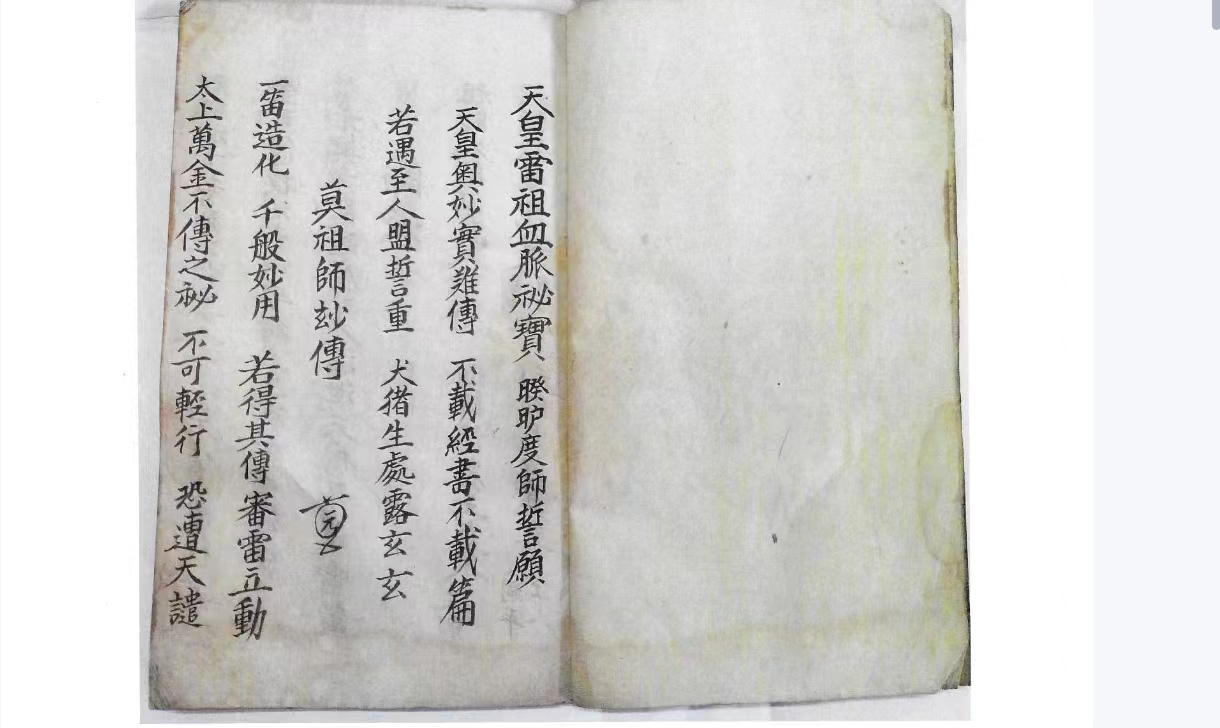 天皇雷祖血脈祕寶 睽𥅆度師誓願
天皇奧妙實難傳 不載經書不載篇
若遇至人盟誓重 犬猪生處露玄玄
莫祖師玅傳
一笛造化 千般妙用 若得其傳審雷立動
太上萬金不傳之祕 不可輕行 恐遭天譴